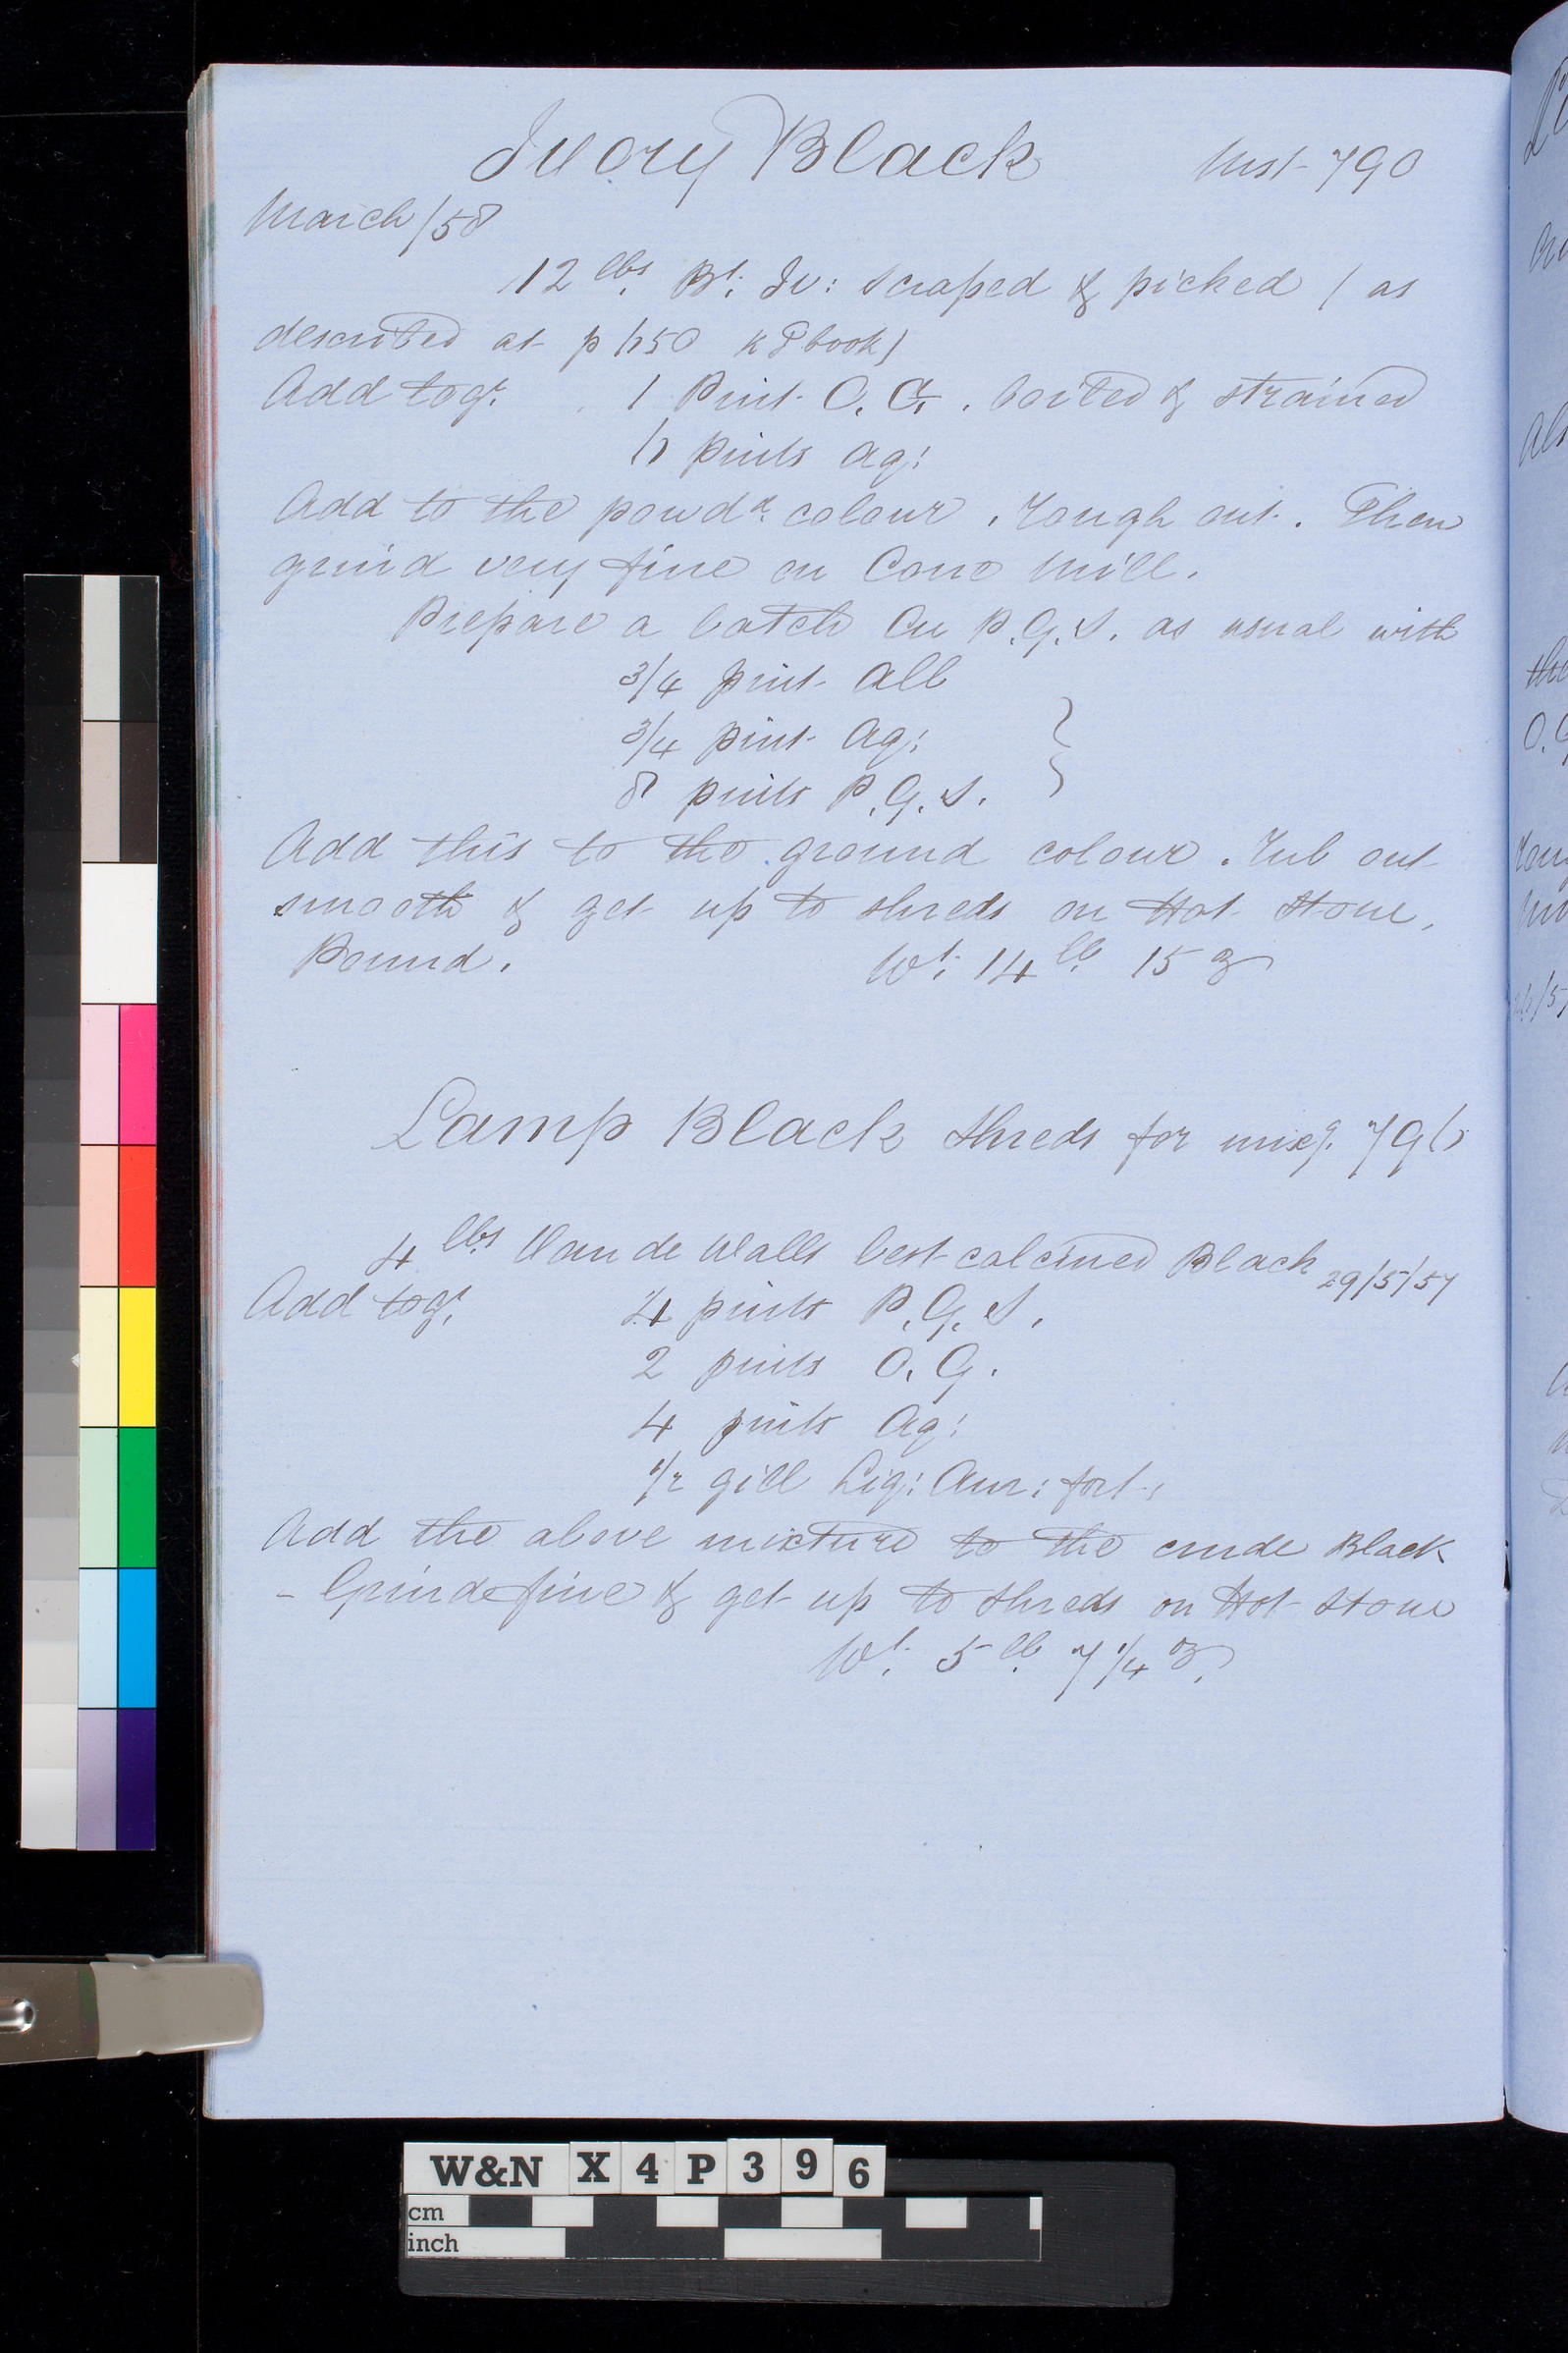 Ivory Black Mst 790
March/58
12 lbs. Bt. Iv: Scraped & picked (as
described at p 650 K P book)
Add togr. 1 Pint O. G. boiled & strained
6 pints Aq:
Add to the powdd. colour. Rough out. Then
grind very fine on Cone Mill.
Prepare a batch Cu P.G.S. as usual with
3/4 pint Alb
3/4 pint Aq:
8 pints P.G.S.
Add this to the ground colour. Rub out
smooth & get up to shreds on Hot Stone.
Pound. Wt. 14 lb. 15 oz
Lamp Black Shreds for mixg. 796
4 lbs Van de Walls best calcined Black 29/5/57
Add togr. 4 pints P.G.S.
2 pints O.G.
4 pints Aq:
1/2 gill Liq: Am: fort:
Add the above mixture to the crude Black
- Grind fine & get up to shreds on Hot Stone
Wt. 5 lb. 7 1/4 oz.
W&N X4P396
cm
inch